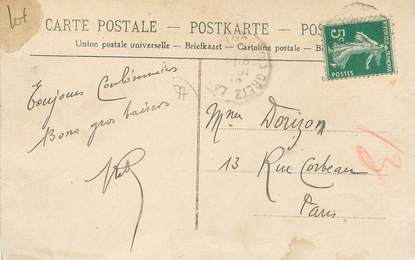 Lot
CARTE POSTALE — POSTKARTE — POS
Union postale universelle — Briefkaart — Cartolina postale — B
5c
POSTES
GRETZ
Toujours Coulommiers
Bons gros baisers
Mme Dorizon
13 Rue Corbeau
Paris